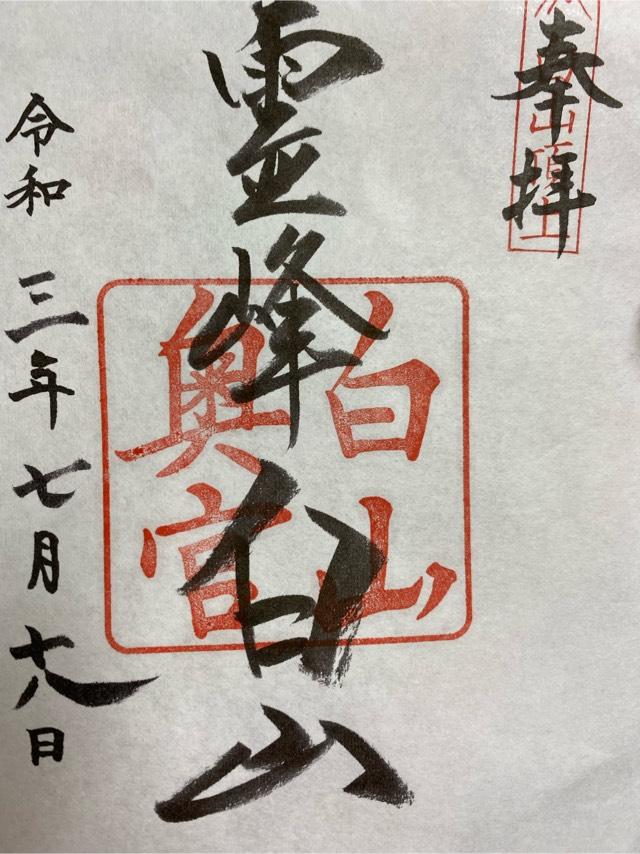 奉拝
靈峰白山
白山
奥宮
令和三年七月十八日